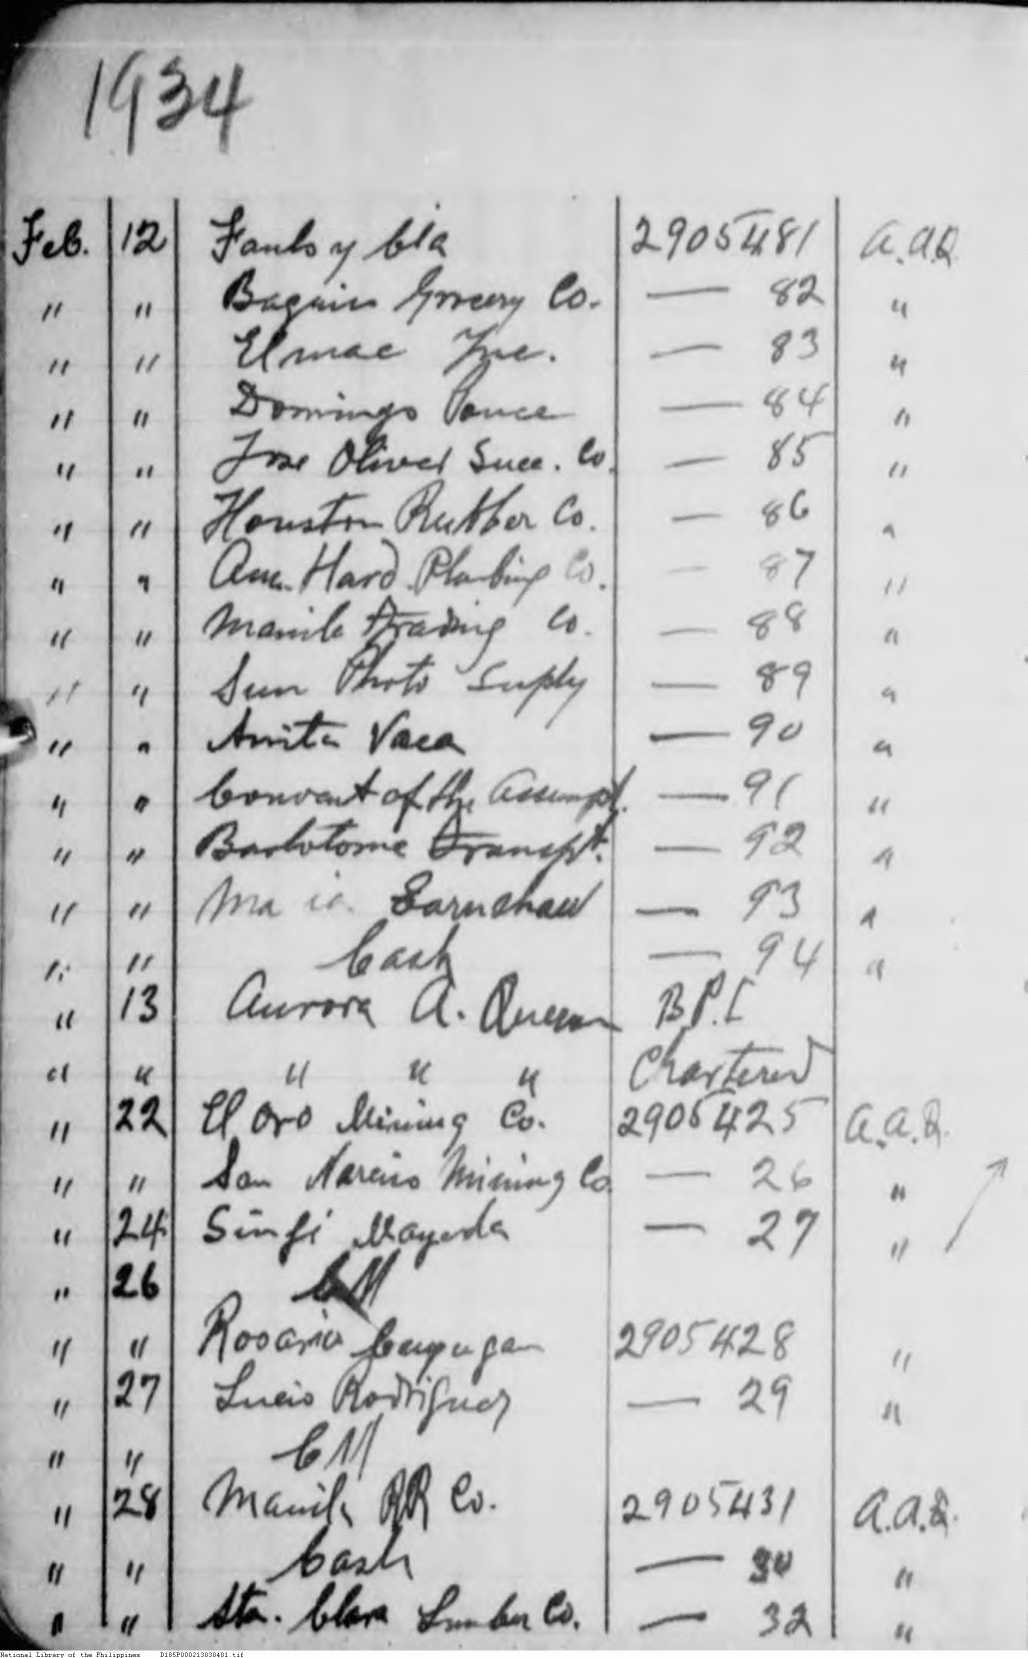 1934
Feb. 12 y Cia 2905481 A.A.Q.
" " Baguio Grocery Co. — 82 "
" " Elmac Inc. — 83 "
" " Domingo Ponce — 84 "
" " Jose Oliver Succ. Co. — 85 "
" " Houston Rubber Co. — 86 "
" " Am. Hard. Plumbing Co. — 87 "
" " Manila Trading Co. — 88 "
" " Sun Photo Suply — 89 "
" " Anita Vaca — 90 "
" " Convent of the Assumpt. — 91 "
" " Bartolome Transpt. — 92 "
" " Earnshaw — 93 "
" " Cash — 94 "
" 13 Aurora A. Quezon B.P.I.
" " " " " Chartered
" 22 El Oro Mining Co. 2905425 A.A.Q.
" " San Narciso Mining Co. — 26 "
" 24 Mayeda — 27 "
" 26
" " Rosario 2905428 "
" 27 Lucio Rodriguez — 29 "
" "
" 28 Manila RR Co. 2905431 A.A.Q.
" " Cash — 30 "
" " Sta. Clara Lumber Co. — 32 "
National Library of the Philippines D185P000213030401.tif